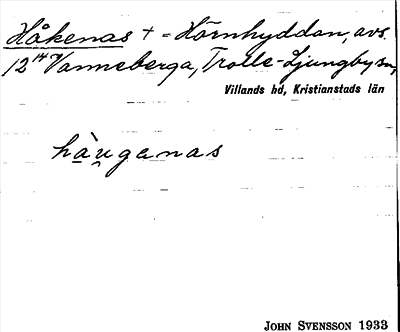 Håkenas + = Hörnhyddan, avs.
12¹⁴⁷ Vanneberga, Trolle-Ljungby sn,
Villands hd, Kristianstads län
hàu̯ganas
JOHN SVENSSON 1933